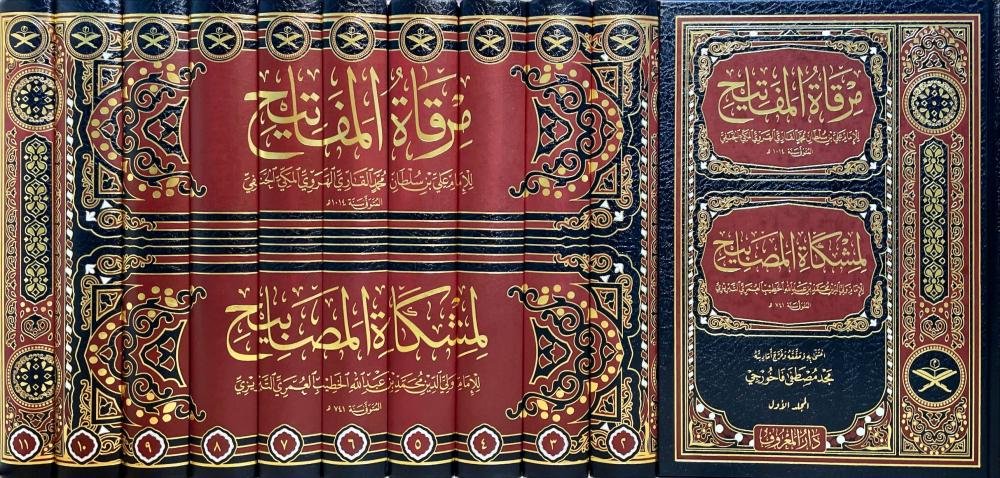 مِرْقَاةُ المَفَاتِيحِ
للإمام علي بن سلطان محمد القاري الهروي المكي الحنفي
المتوفى سنة ١٠١٤ هـ
لِمِشْكَاةِ المَصَابِيحِ
للإمام ولي الدين محمد بن عبد الله الخطيب العمري التبريزي
المتوفى سنة ٧٤١ هـ
اعتنى به وحققه وخرج أحاديثه
مصطفى فاخورجي
المجلد الأول
دار المعروف
مِرْقَاةُ المَفَاتِيحِ
للإمام علي بن سلطان محمد القاري الهروي المكي الحنفي
المتوفى سنة ١٠١٤ هـ
لِمِشْكَاةِ المَصَابِيحِ
للإمام ولي الدين محمد بن عبد الله الخطيب العمري التبريزي
المتوفى سنة ٧٤١ هـ
٢ ٣ ٤ ٥ ٦ ٧ ٨ ٩ ١٠ ١١